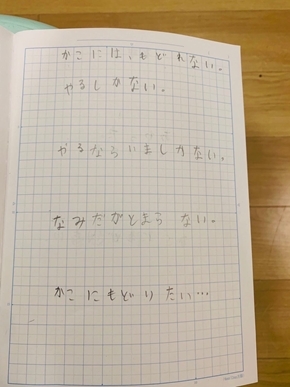 かこには、もどれない。
やるしかない。
やるならいましかない。
なみだがとまらない。
かこにもどりたい…